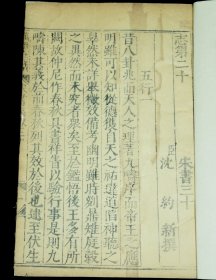 志第二十 宋書三十
臣沈 約 新撰
五行一
昔八卦兆而天人之理著九疇序而帝王之應
明雖可以知從德獲自天之祐違道陷神聽之
罪然未詳舉徵效備考幽明雖時列鼎雉庭穀
之異然而未究者衆矣至於鑒悟後王多有所
闕故仲尼作春秋具書祥眚以驗行事是則九
疇陳其義於前春秋列其效於後也逮至伏生